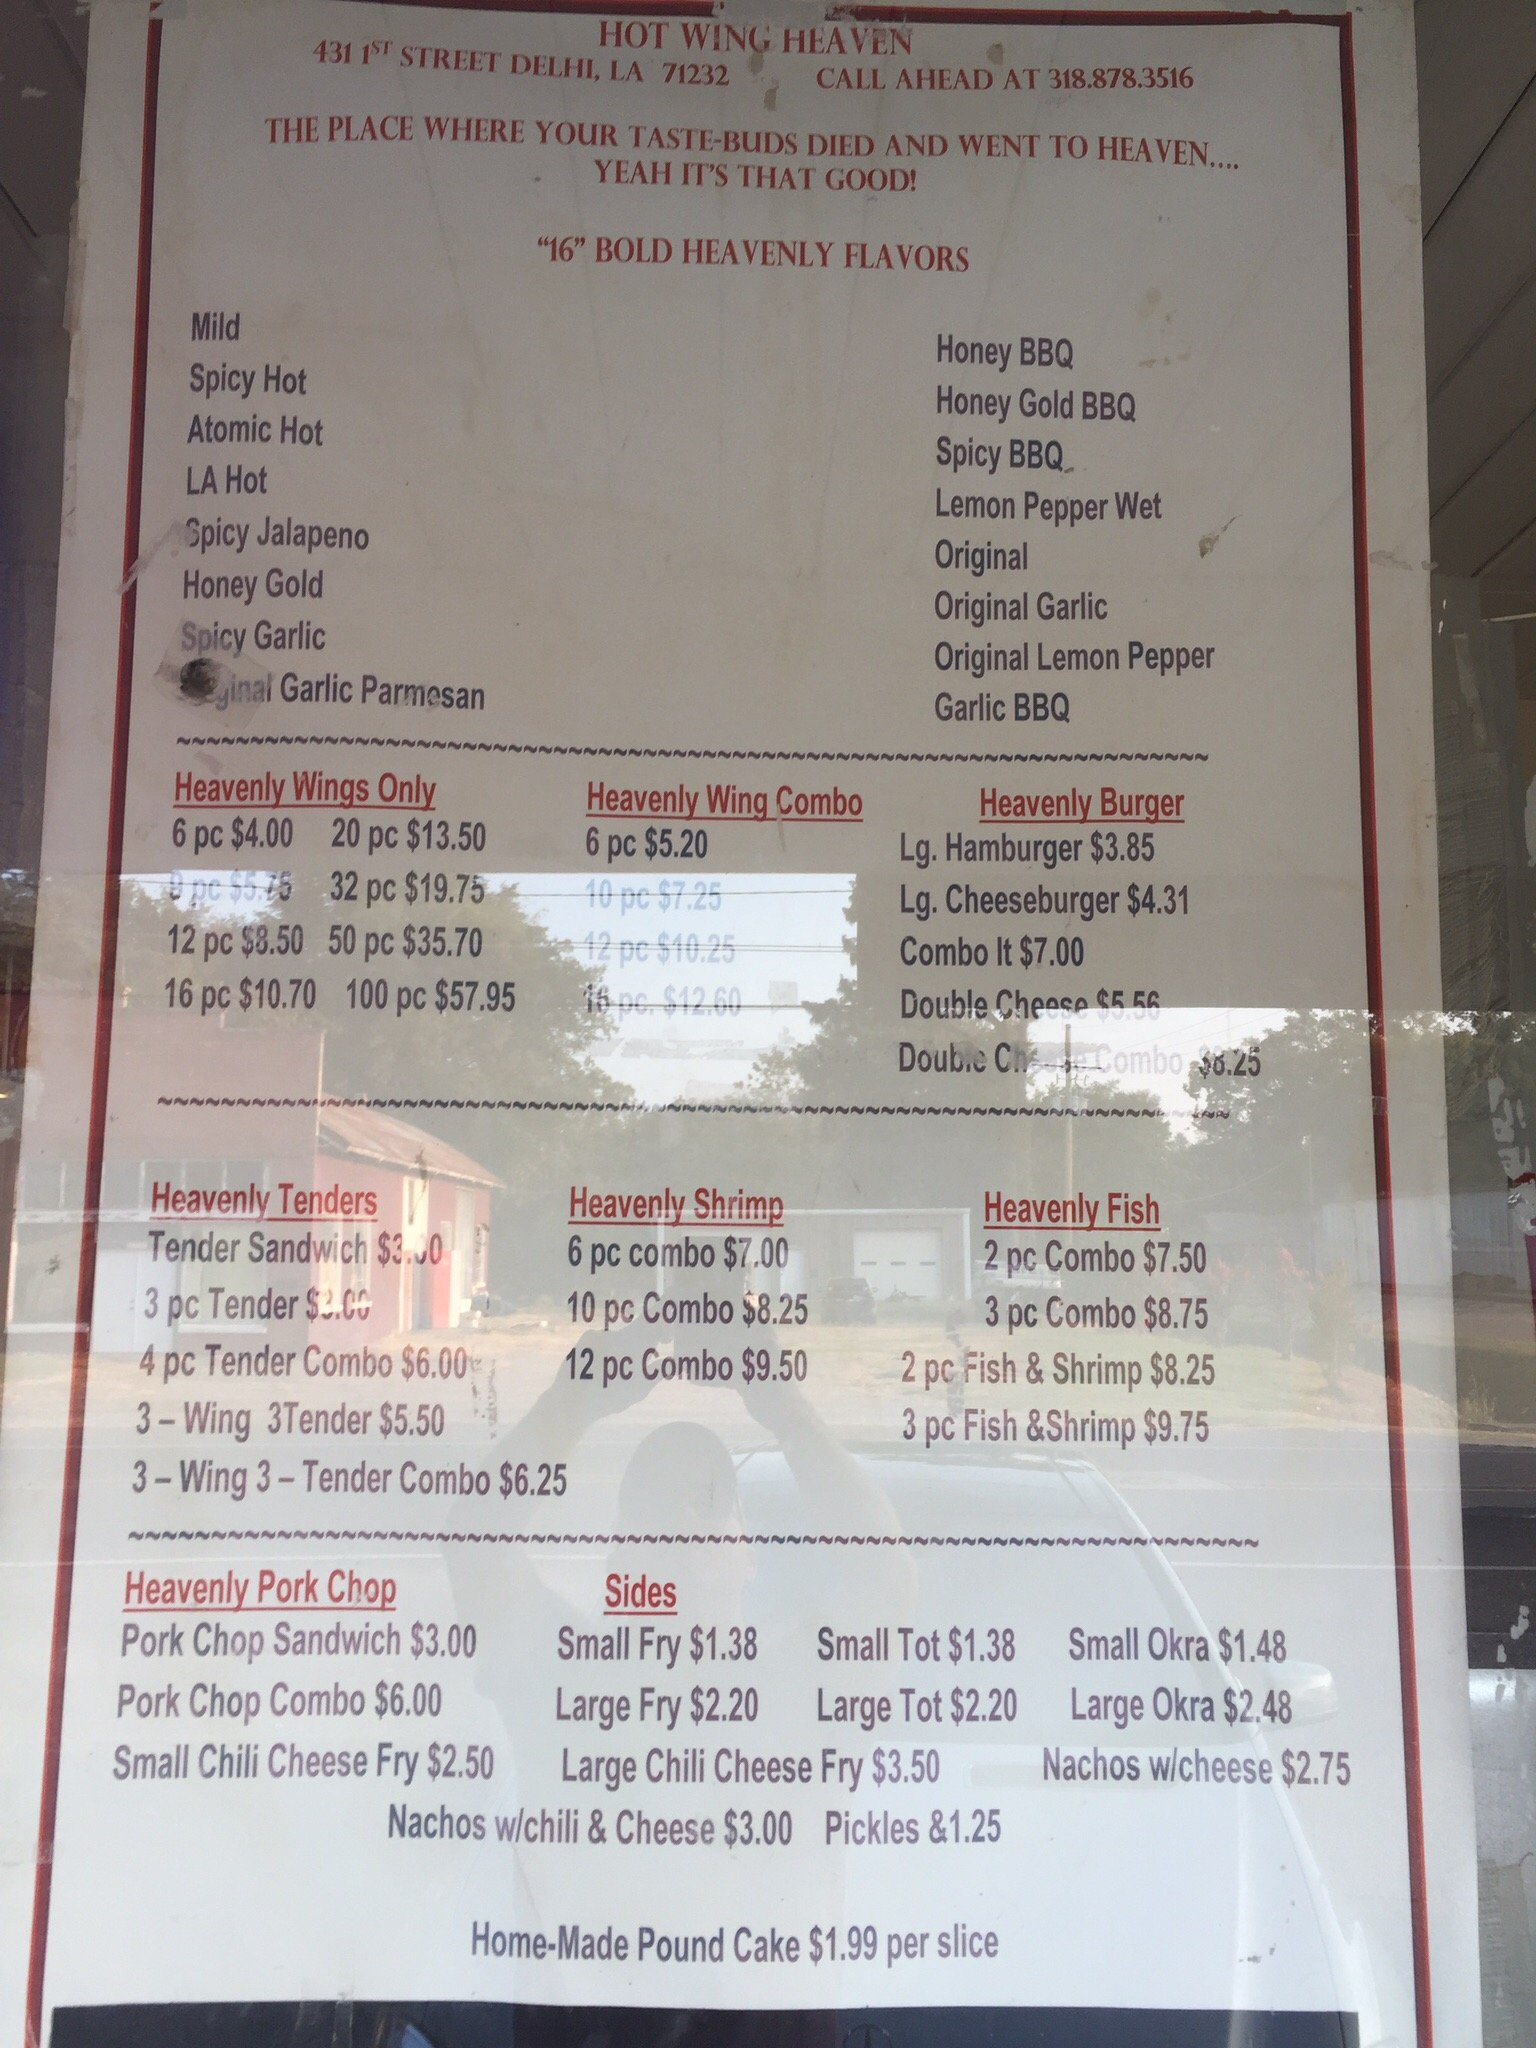 HOT WING HEAVEN
431 1ST STREET DELHI, LA 71232 CALL AHEAD AT 318.878.3516
THE PLACE WHERE YOUR TASTE-BUDS DIED AND WENT TO HEAVEN....
YEAH IT'S THAT GOOD!
"16" BOLD HEAVENLY FLAVORS
Mild
Spicy Hot
Atomic Hot
LA Hot
Spicy Jalapeno
Honey Gold
Spicy Garlic
Garlic Parmesan
Honey BBQ
Honey Gold BBQ
Spicy BBQ
Lemon Pepper Wet
Original
Original Garlic
Original Lemon Pepper
Garlic BBQ
~~~~~~~~~~~~~~~~~~~~~~~~~~~~~~~~~~~~~~~~~~~~~~~~~~~~~~~~~~~~~~~~~~~~~~
Heavenly Wings Only
6 pc $4.00 20 pc $13.50
pc $5.75 32 pc $19.75
12 pc $8.50 50 pc $35.70
16 pc $10.70 100 pc $57.95
Heavenly Wing Combo
6 pc $5.20
10 pc $7.25
12 pc $10.25
16 pc. $12.60
Heavenly Burger
Lg. Hamburger $3.85
Lg. Cheeseburger $4.31
Combo It $7.00
Double Cheese $5.56
Double Cheese Combo $8.25
~~~~~~~~~~~~~~~~~~~~~~~~~~~~~~~~~~~~~~~~~~~~~~~~~~~~~~~~~~~~~~~~~~~~~~
Heavenly Tenders
Tender Sandwich
3 pc Tender
4 pc Tender Combo $6.00
3 – Wing 3Tender $5.50
3 – Wing 3 – Tender Combo $6.25
Heavenly Shrimp
6 pc combo $7.00
10 pc Combo $8.25
12 pc Combo $9.50
Heavenly Fish
2 pc Combo $7.50
3 pc Combo $8.75
2 pc Fish & Shrimp $8.25
3 pc Fish &Shrimp $9.75
~~~~~~~~~~~~~~~~~~~~~~~~~~~~~~~~~~~~~~~~~~~~~~~~~~~~~~~~~~~~~~~~~~~~~~
Heavenly Pork Chop
Pork Chop Sandwich $3.00
Pork Chop Combo $6.00
Sides
Small Fry $1.38 Small Tot $1.38 Small Okra $1.48
Large Fry $2.20 Large Tot $2.20 Large Okra $2.48
Small Chili Cheese Fry $2.50 Large Chili Cheese Fry $3.50 Nachos w/cheese $2.75
Nachos w/chili & Cheese $3.00 Pickles &1.25
Home-Made Pound Cake $1.99 per slice